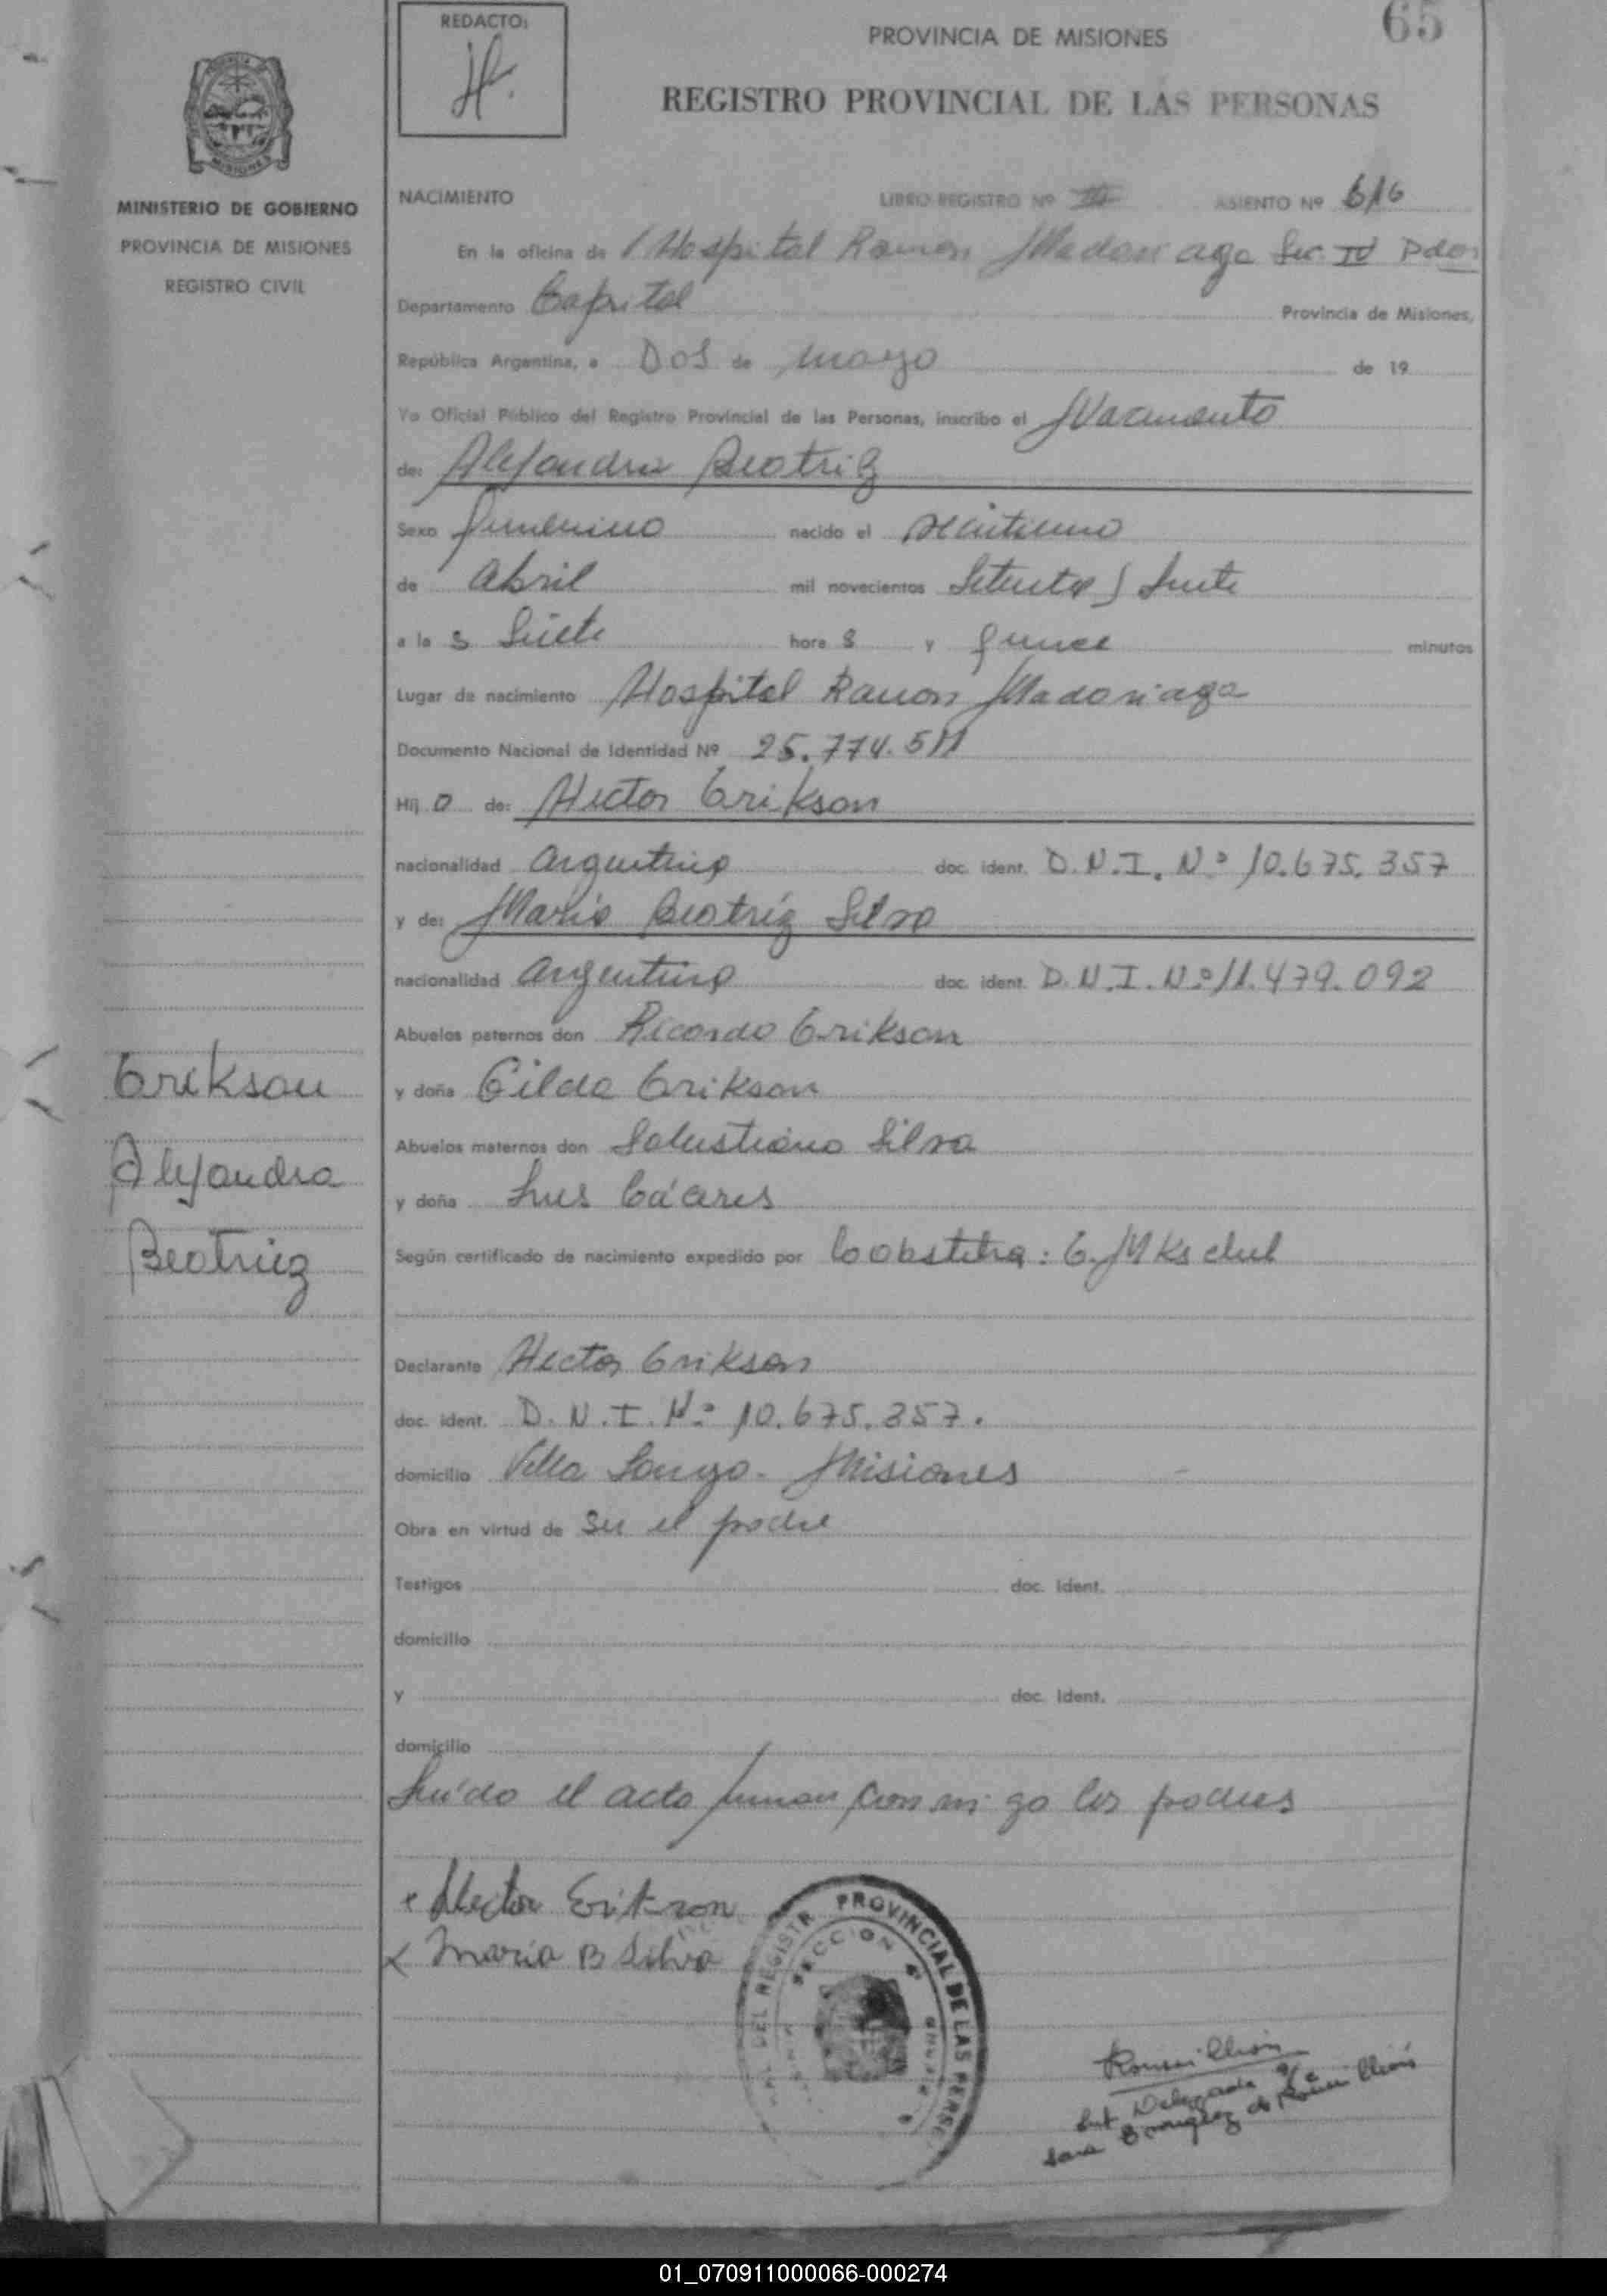 REDACTO:
PROVINCIA DE MISIONES
65
REGISTRO PROVINCIAL DE LAS PERSONAS
MISIONES
MINISTERIO DE GOBIERNO
PROVINCIA DE MISIONES
REGISTRO CIVIL
NACIMIENTO LIBRO REGISTRO Nº III ASIENTO Nº 616
En la oficina de Hospital Ramon Madariaga Sec. IV Pdas
Departamento Capital Provincia de Misiones,
República Argentina, a Dos de mayo de 19
Yo Oficial Público del Registro Provincial de las Personas, inscribo el Nacimiento
de: Alejandra Beatriz
Sexo femenino nacido el veintiuno
de Abril mil novecientos Setenta y Siete
a la s Siete hora s y quince minutos
Lugar de nacimiento Hospital Ramon Madariaga
Documento Nacional de Identidad Nº 25.774.511
Hij a de: Hector Erikson
nacionalidad argentina doc. ident. D.N.I. Nº 10.675.357
y de: Maria Beatriz Silva
nacionalidad argentina doc. ident. D.N.I. Nº 11.479.092
Abuelos paternos don Ricardo Erikson
y doña Gilda Erikson
Abuelos maternos don Salustiano Silva
y doña Luis Cáceres
Según certificado de nacimiento expedido por la obstetra:
Declarante Hector Erikson
doc. ident. D.N.I. Nº 10.675.357.
domicilio Villa Longo - Misiones
Obra en virtud de ser el padre
Testigos doc. Ident.
domicilio
y doc. Ident.
domicilio
Leído el acta firman conmigo los padres
Erikson
Alejandra
Beatriz
x Hector Erikson
x Maria B Silva
DEL REGISTR PROVINCIAL DE LAS PERSO
SECCION
Romillion
Sub Delegada a/c
Sara Gonzalez de Romillion
01_070911000066-000274